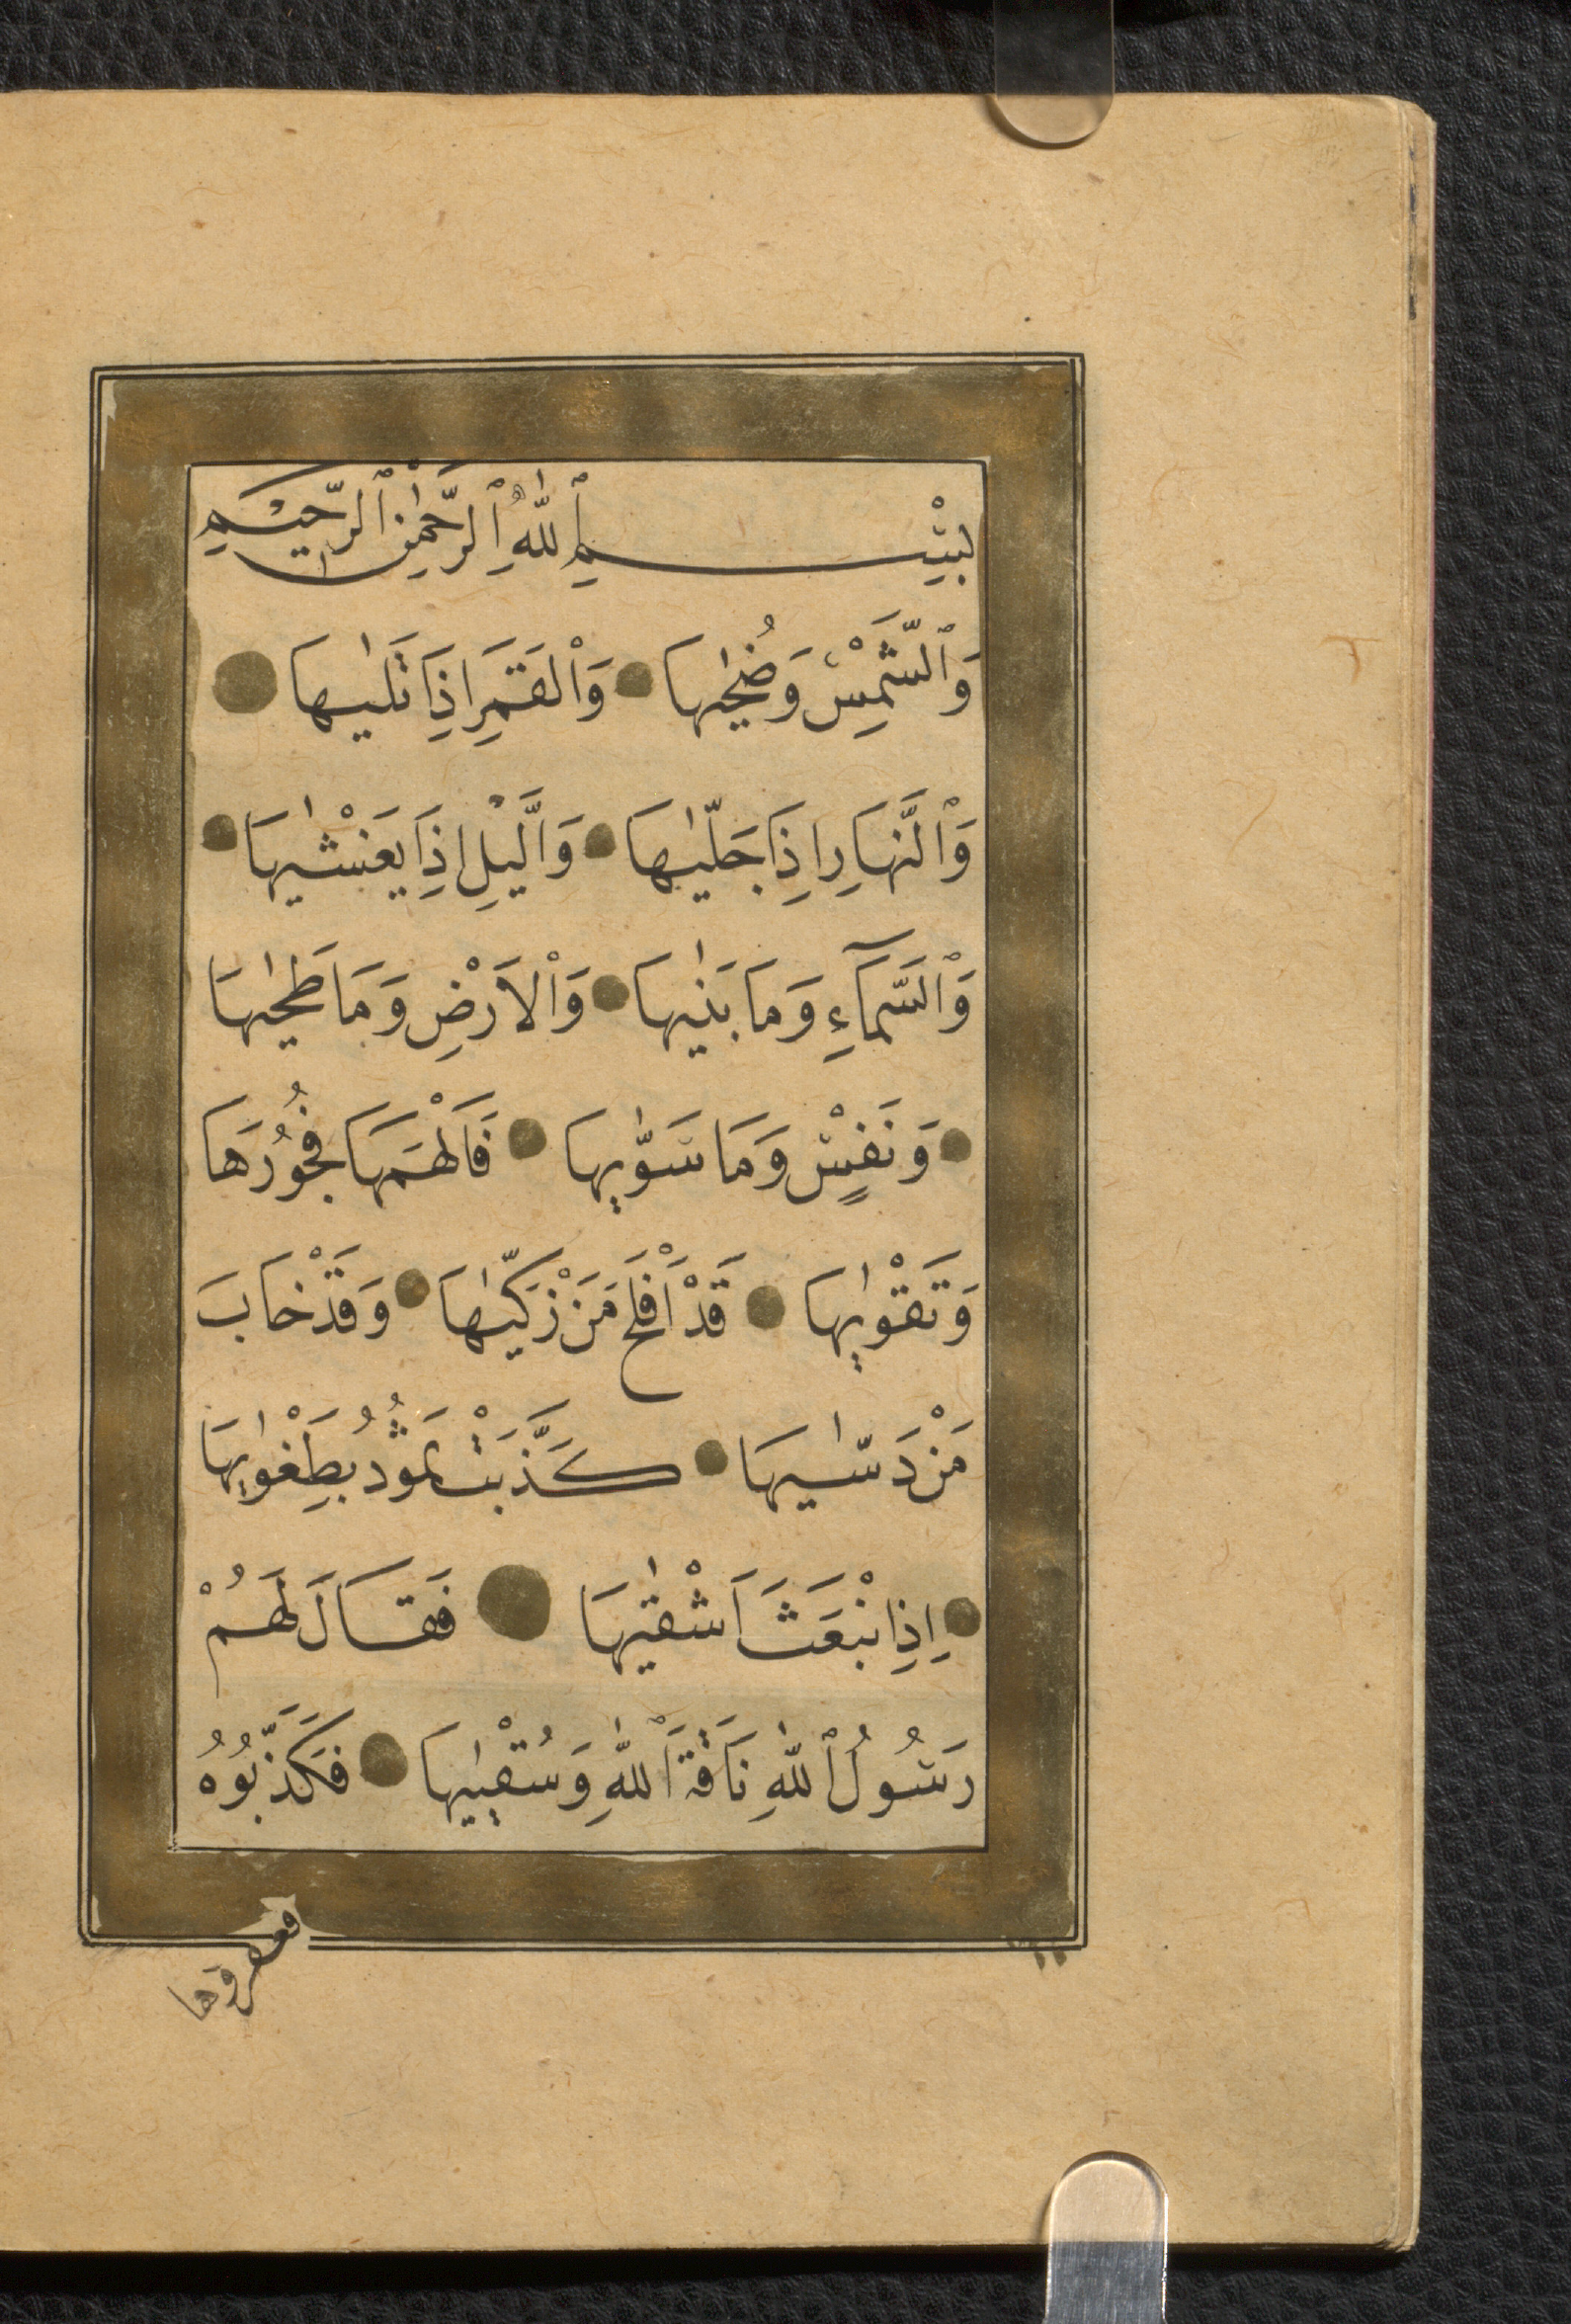 بِسْمِ ٱللّٰهِ ٱلرَّحْمٰنِ ٱلرَّحِيْمِ
وَٱلشَّمْسِ وَضُحٰيهَا وَٱلْقَمَرِ اِذَا تَلٰيهَا
وَٱلنَّهَارِ اِذَا جَلّٰيهَا وَالَّيْلِ اِذَا يَغْشٰيهَا
وَٱلسَّمَآءِ وَمَا بَنٰيهَا وَٱلْاَرْضِ وَمَا طَحٰيهَا
وَنَفْسٍ وَمَا سَوّٰيهَا فَاَلْهَمَهَا فُجُورَهَا
وَتَقْوٰيهَا قَدْ اَفْلَحَ مَنْ زَكّٰيهَا وَقَدْ خَابَ
مَنْ دَسّٰيهَا كَذَّبَتْ ثَمُودُ بِطَغْوٰيهَا
اِذِ انْبَعَثَ اَشْقٰيهَا فَقَالَ لَهُمْ
رَسُولُ ٱللّٰهِ نَاقَةَ ٱللّٰهِ وَسُقْيٰيهَا فَكَذَّبُوهُ
فعقروها